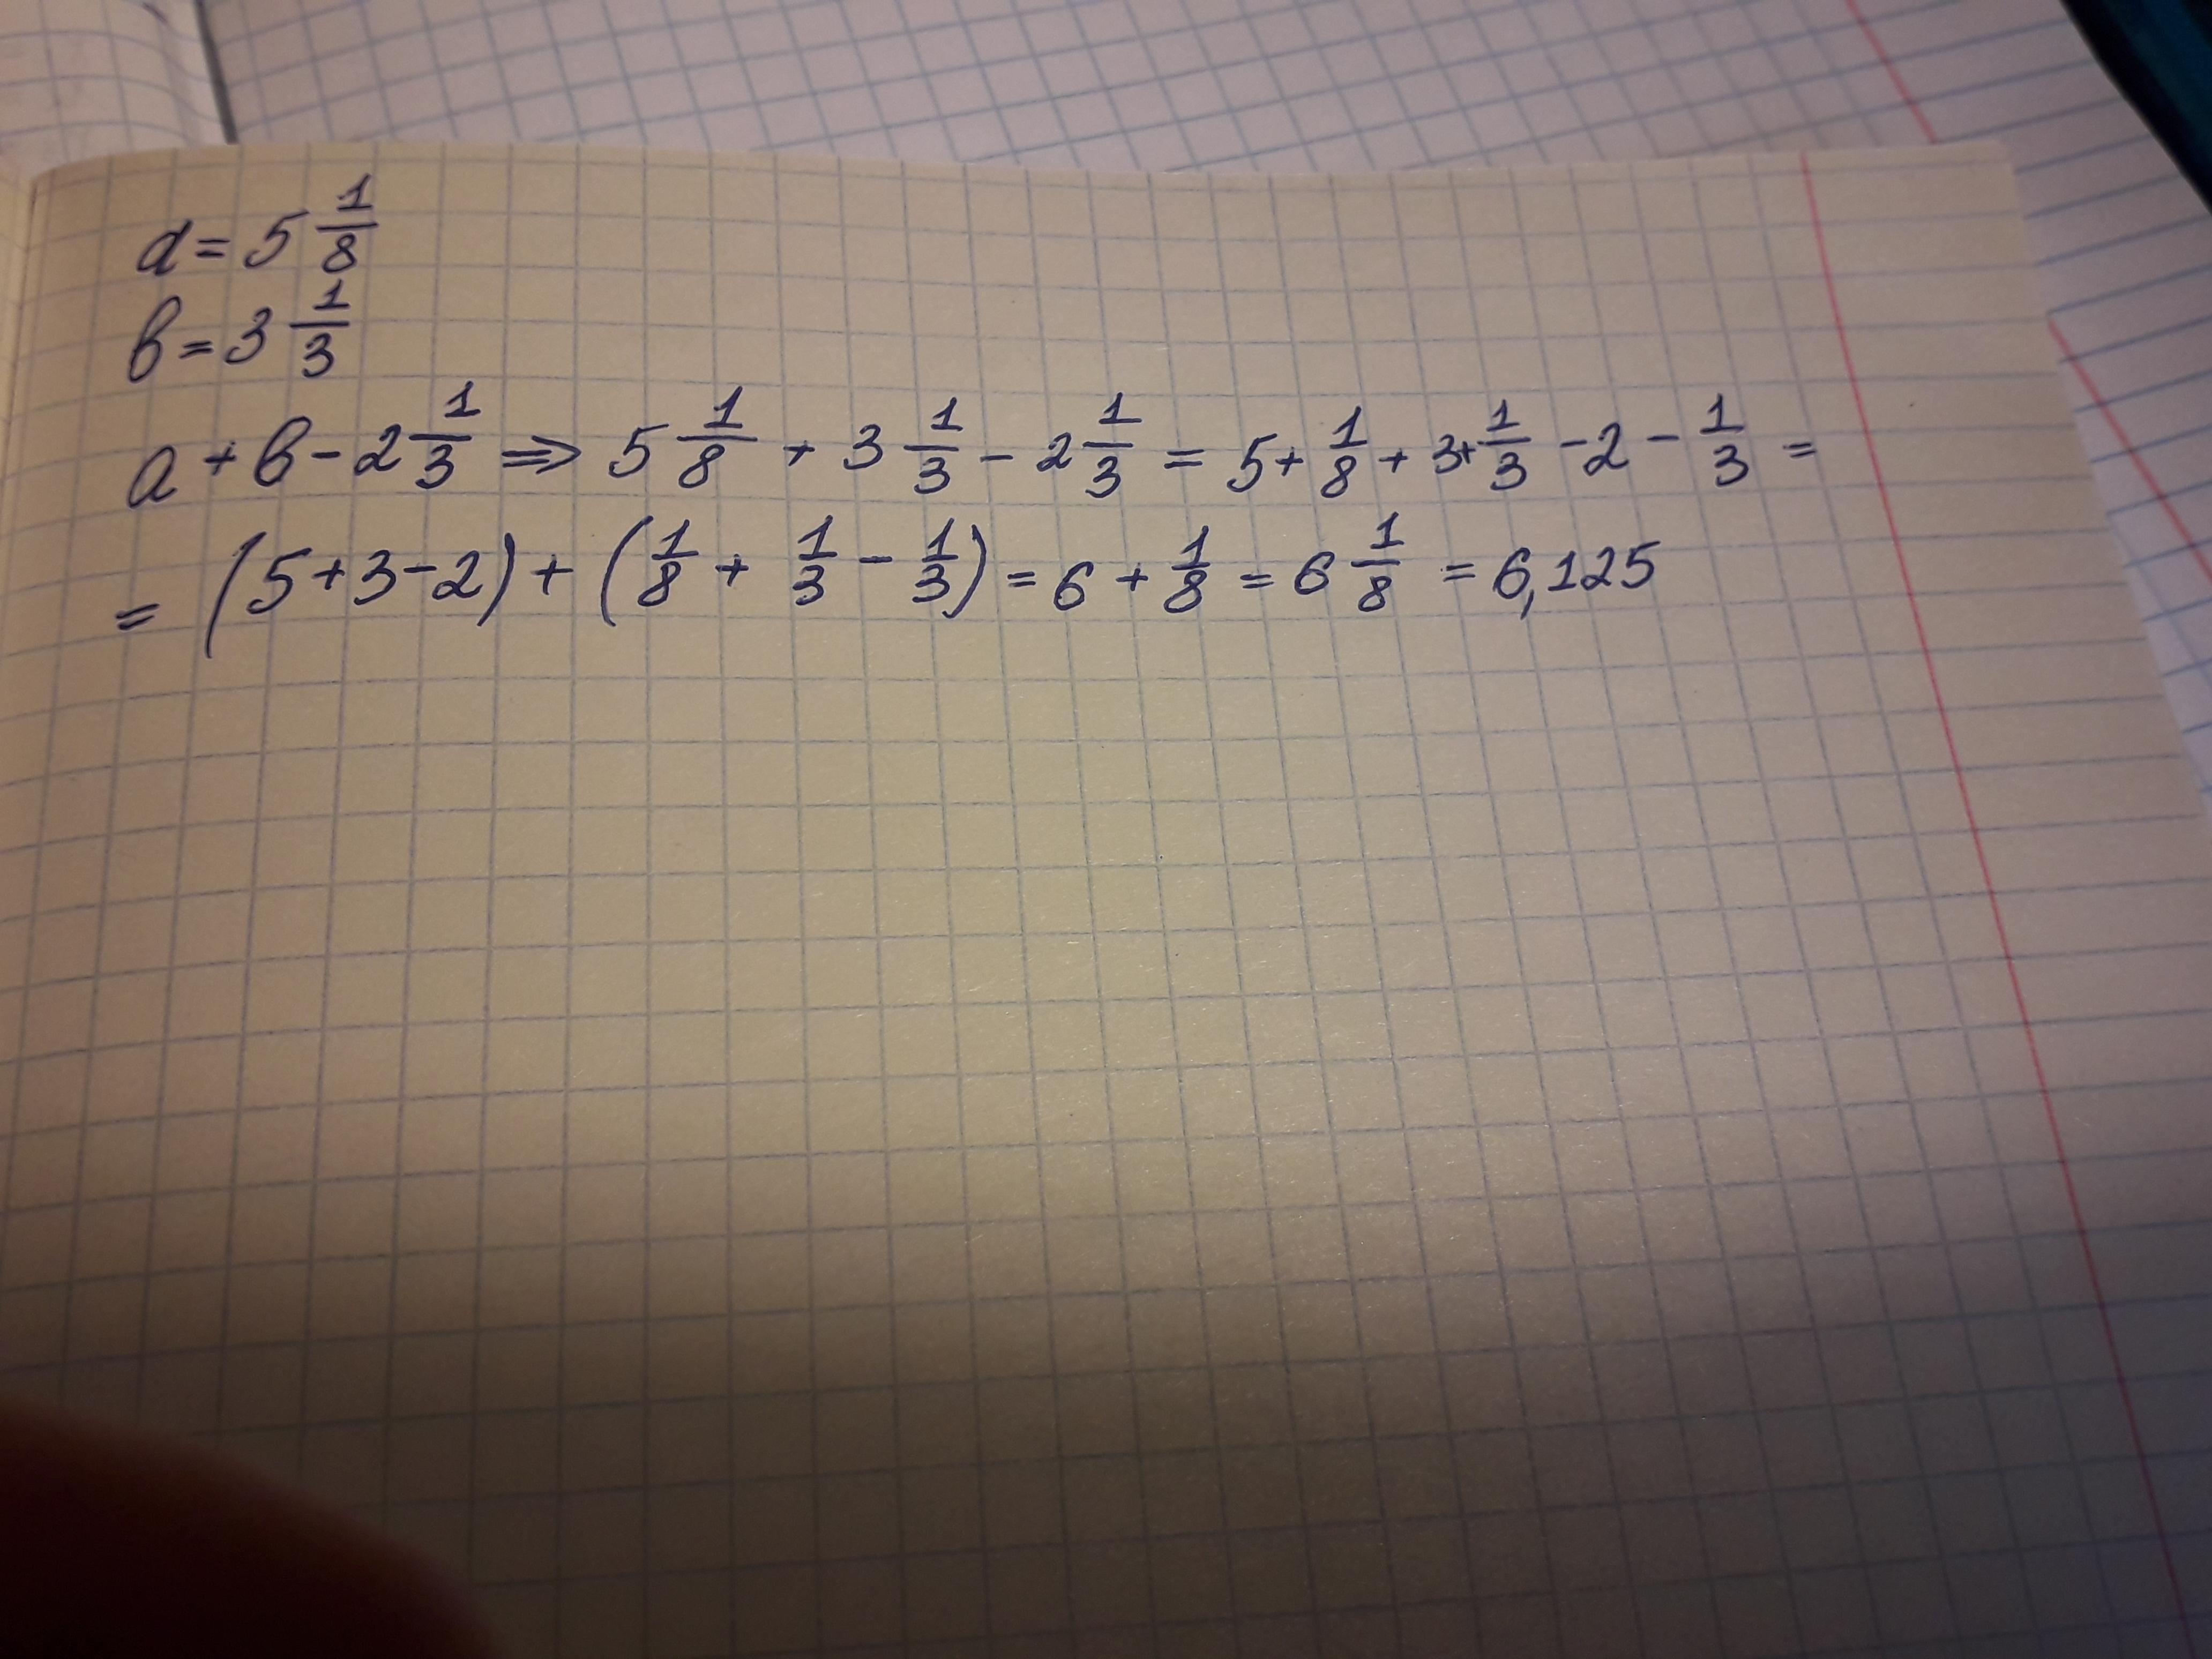 a = 5 1/8
b = 3 1/3
a + b - 2 1/3 ⇒ 5 1/8 + 3 1/3 - 2 1/3 = 5 + 1/8 + 3 + 1/3 - 2 - 1/3 =
= (5 + 3 - 2) + (1/8 + 1/3 - 1/3) = 6 + 1/8 = 6 1/8 = 6,125